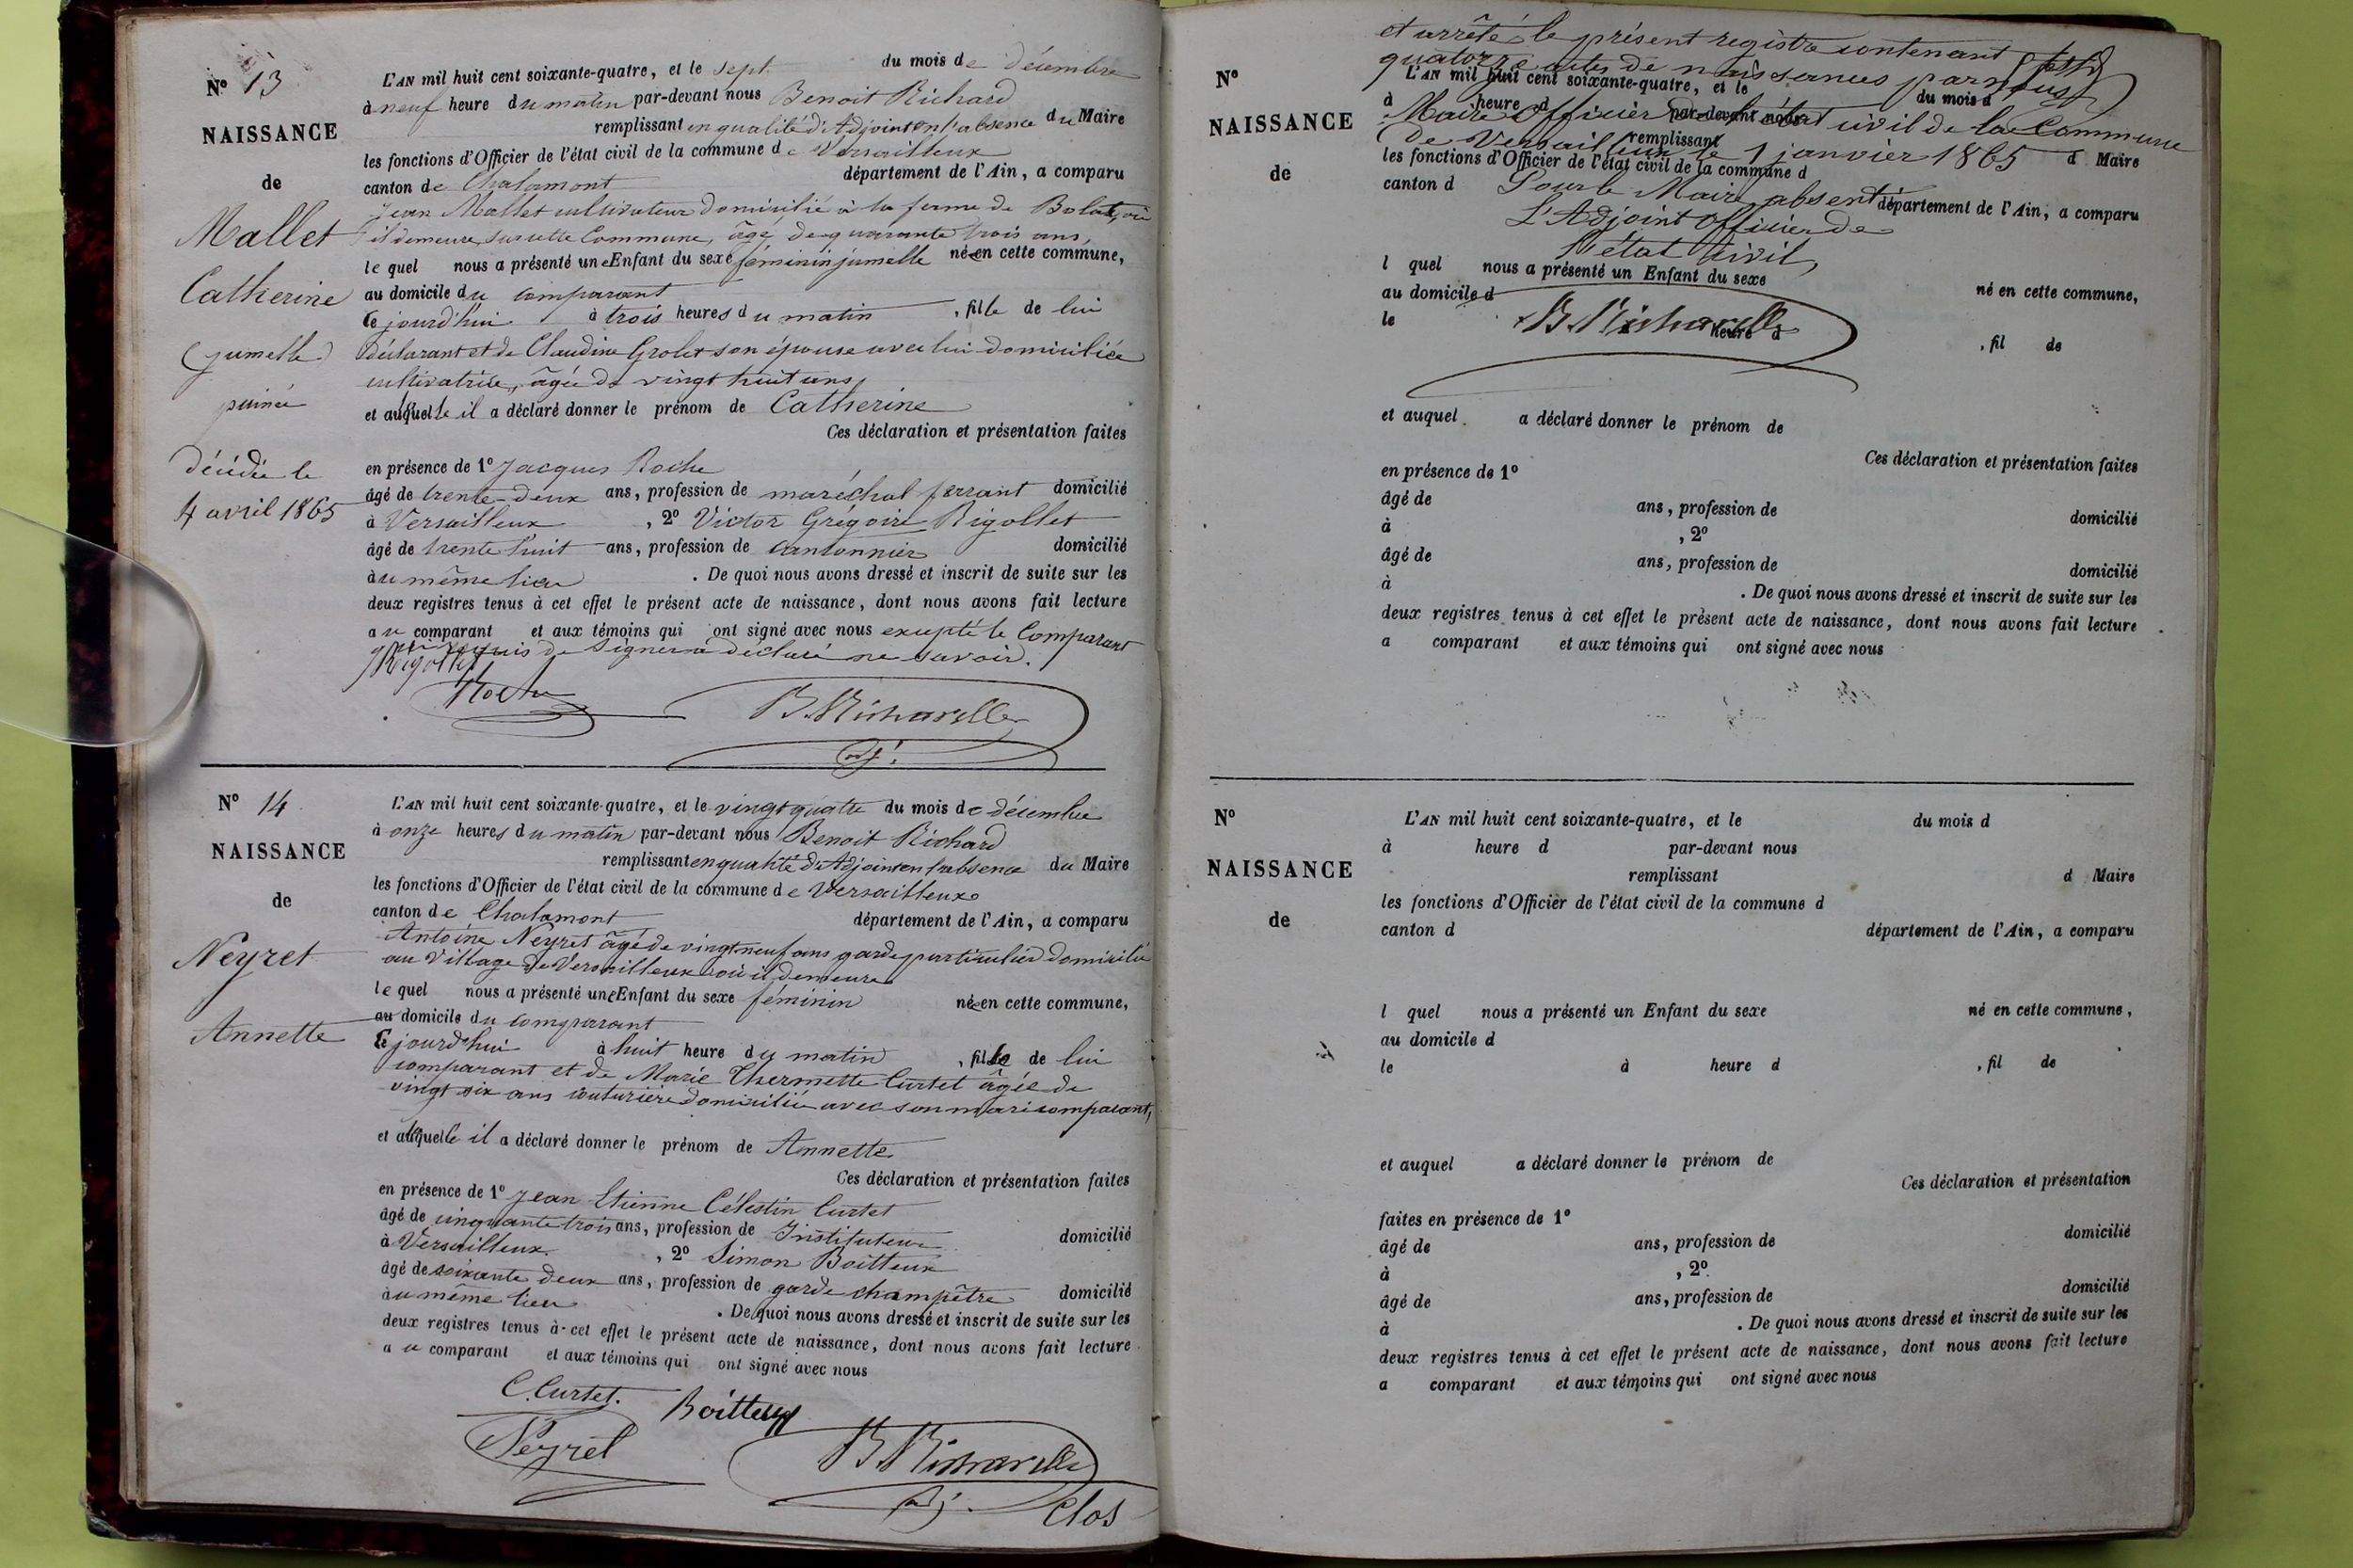 N° 13
NAISSANCE
de
Mallet
Catherine
(jumelle)
puinée
décédée le
4 avril 1865
L'AN mil huit cent soixante-quatre, et le sept du mois de décembre
à neuf heure du matin par-devant nous Benoit Richard
remplissant en qualité d'Adjoint en l'absence du Maire
les fonctions d'Officier de l'état civil de la commune de Versailleux
canton de Chalamont département de l'Ain, a comparu
Jean Mallet cultivateur domicilié à la ferme de où
il demeure sur cette Commune, âgé de quarante trois ans,
lequel nous a présenté une Enfant du sexe féminin jumelle née en cette commune,
au domicile du comparant
ce jourd'hui à trois heures du matin, fille de lui
déclarant et de Claudine Grolet son épouse avec lui domiciliée
cultivatrice, âgée de vingt huit ans,
et à laquelle il a déclaré donner le prénom de Catherine
Ces déclaration et présentation faites
en présence de 1° Jacques Roche
âgé de trente-deux ans, profession de maréchal ferrant domicilié
à Versailleux, 2° Victor Grégoire Rigollet
âgé de trente huit ans, profession de cantonnier domicilié
au même lieu. De quoi nous avons dressé et inscrit de suite sur les
deux registres tenus à cet effet le présent acte de naissance, dont nous avons fait lecture
au comparant et aux témoins qui ont signé avec nous excepté le Comparant
qui requis de signer a déclaré ne savoir.
Rigollet
Roche B. Richard
adj.
N° 14
NAISSANCE
de
Neyret
Annette
L'AN mil huit cent soixante-quatre, et le vingt quatre du mois de décembre
à onze heures du matin par-devant nous Benoit Richard
remplissant en qualité d'Adjoint en l'absence du Maire
les fonctions d'Officier de l'état civil de la commune de Versailleux
canton de Chalamont département de l'Ain, a comparu
Antoine Neyret âgé de vingt neuf ans garde particulier domicilié
au Village de Versailleux où il demeure
lequel nous a présenté une Enfant du sexe féminin née en cette commune,
au domicile du comparant
ce jourd'hui à huit heure du matin, fille de lui
comparant et de Marie Thermette Curtet âgée de
vingt six ans couturière domiciliée avec son mari comparant,
et à laquelle il a déclaré donner le prénom de Annette
Ces déclaration et présentation faites
en présence de 1° Jean Etienne Célestin Curtet
âgé de cinquante trois ans, profession de Instituteur domicilié
à Versailleux, 2° Simon Boitteux
âgé de soixante deux ans, profession de garde champêtre domicilié
au même lieu. De quoi nous avons dressé et inscrit de suite sur les
deux registres tenus à cet effet le présent acte de naissance, dont nous avons fait lecture
au comparant et aux témoins qui ont signé avec nous
C. Curtet. Boitteux
Neyret B. Richard
adj.
Clos
et arrêté le présent registre contenant
quatorze actes de naissances par nous
Maire Officier de l'état civil de la Commune
de Versailleux le 1 janvier 1865
Pour le Maire absent
L'Adjoint Officier de
l'état civil,
B. Richard
N°
NAISSANCE
de
L'AN mil huit cent soixante-quatre, et le du mois d
à heure d par-devant nous
remplissant d Maire
les fonctions d'Officier de l'état civil de la commune d
canton d département de l'Ain, a comparu
l quel nous a présenté un Enfant du sexe né en cette commune,
au domicile d
le heure d , fil de
et auquel a déclaré donner le prénom de
Ces déclaration et présentation faites
en présence de 1°
âgé de ans, profession de domicilié
à , 2°
âgé de ans, profession de domicilié
à . De quoi nous avons dressé et inscrit de suite sur les
deux registres tenus à cet effet le présent acte de naissance, dont nous avons fait lecture
a comparant et aux témoins qui ont signé avec nous
N°
NAISSANCE
de
L'AN mil huit cent soixante-quatre, et le du mois d
à heure d par-devant nous
remplissant d Maire
les fonctions d'Officier de l'état civil de la commune d
canton d département de l'Ain, a comparu
l quel nous a présenté un Enfant du sexe né en cette commune,
au domicile d
le à heure d , fil de
et auquel a déclaré donner le prénom de
Ces déclaration et présentation
faites en présence de 1°
âgé de ans, profession de domicilié
à , 2°
âgé de ans, profession de domicilié
à . De quoi nous avons dressé et inscrit de suite sur les
deux registres tenus à cet effet le présent acte de naissance, dont nous avons fait lecture
a comparant et aux témoins qui ont signé avec nous